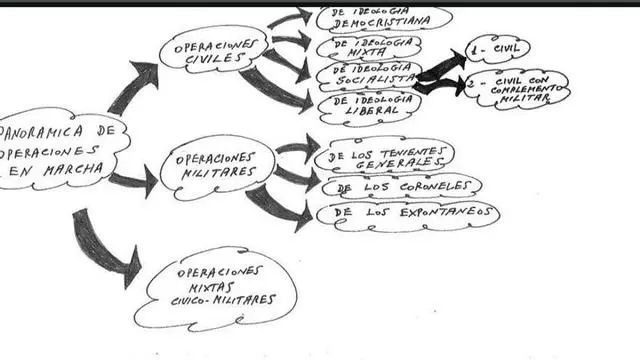 PANORÁMICA DE
OPERACIONES
EN MARCHA
OPERACIONES
CIVILES
DE IDEOLOGIA
DEMOCRISTIANA
DE IDEOLOGIA
MIXTA
DE IDEOLOGIA
SOCIALISTA
1- CIVIL
2- CIVIL CON
COMPLEMENTO
MILITAR
DE IDEOLOGIA
LIBERAL
OPERACIONES
MILITARES
DE LOS TENIENTES
GENERALES
DE LOS CORONELES
DE LOS EXPONTANEOS
OPERACIONES
MIXTAS
CIVICO-MILITARES